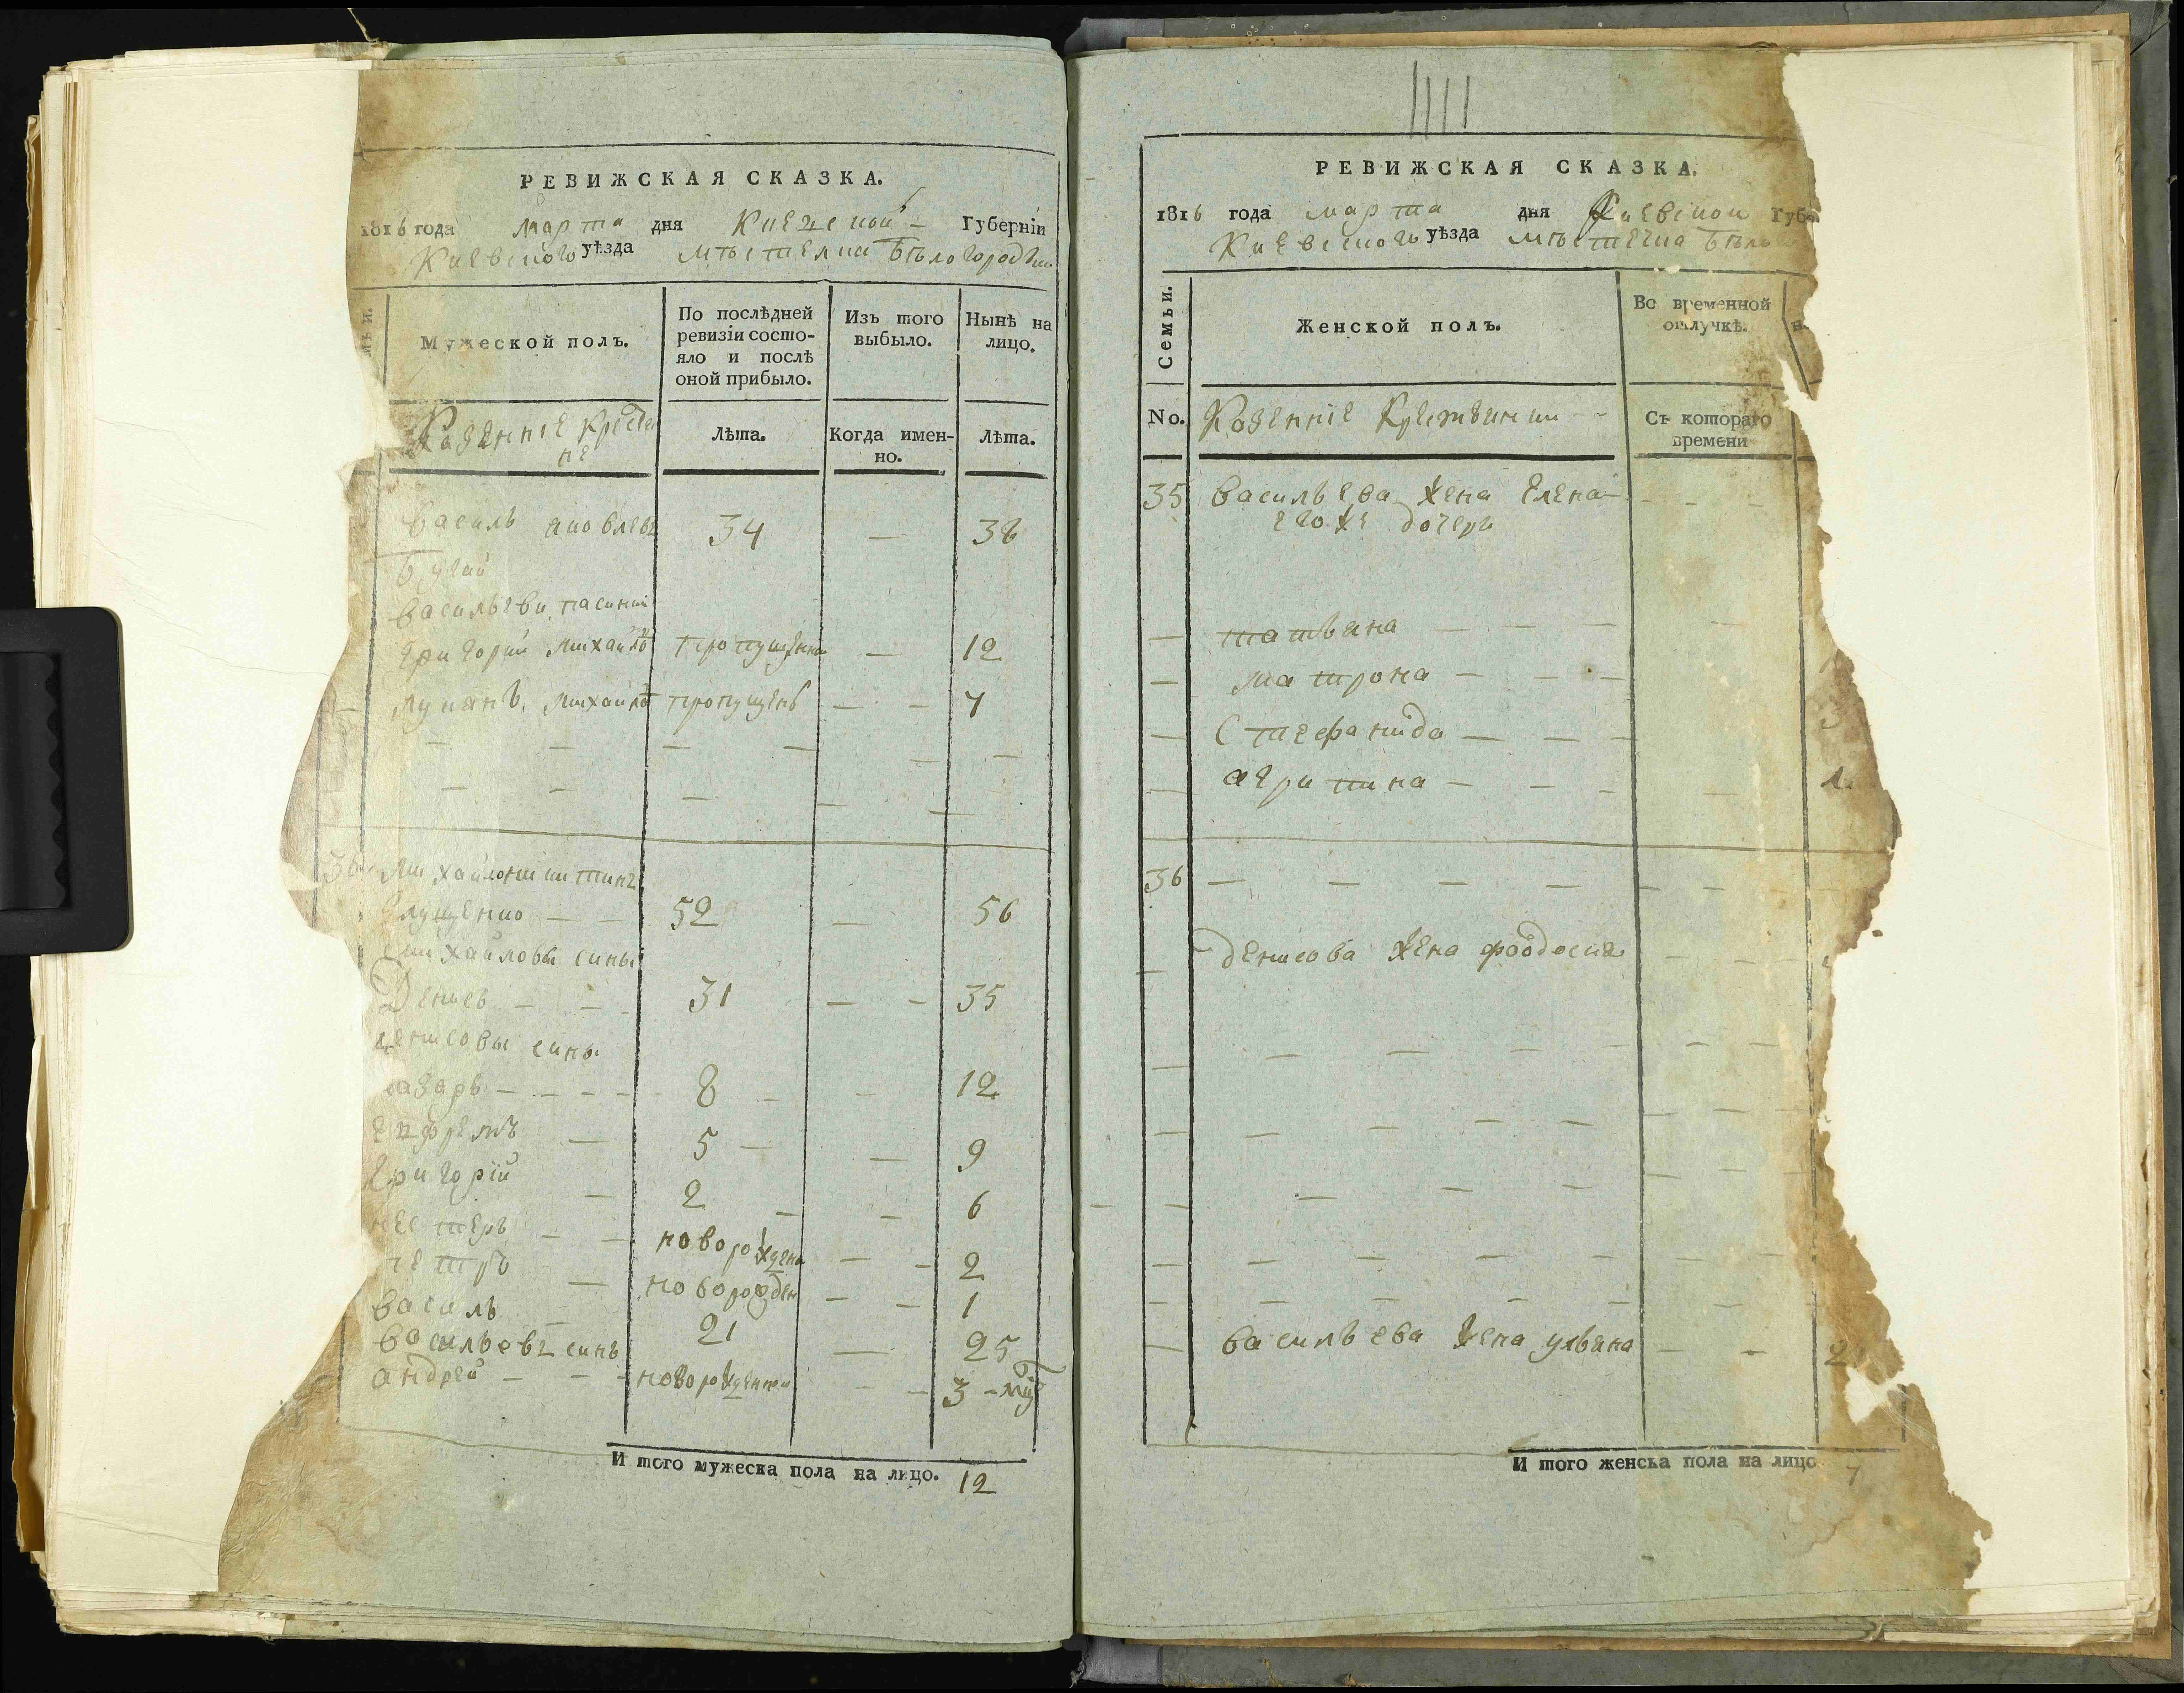 РЕВИЖСКАЯ СКАЗКА.
1816 года марта дня Киевской Губерніи
Киевского уѣзда мѣстечка Бѣлогородки
Мужеской полъ.
По послѣдней ревизіи состояло и послѣ оной прибыло.
Изъ того выбыло.
Нынѣ на лицо.
Казенніе крестяне
Лѣта.
Когда именно.
Лѣта.
Василь Яковлевъ 34 — 38
Бугай
Васильеви пасинки
Григорий Михайлъ пропущенъ — 12
Лукянъ Михайлъ пропущенъ — — 7
36 Михайло Никитинъ
Глущенко — — 52 — 56
Михайловы сины
Денисъ — — 31 — — 35
Денисовы сины
Лазаръ — — — — 8 — — 12
Ефремъ — 5 — — 9
Григорій — 2 — — 6
Нестеръ — — новорожден — — 2
Петръ — новорожден — — 1
Василь 21 — 25
Васильевъ синъ
Андрей — — — новорожденни — — 3 — мца
И того мужеска пола на лицо. 12
РЕВИЖСКАЯ СКАЗКА.
1816 года марта дня Киевской Губе
Киевского уѣзда мѣстечка Бѣлого
Семьи.
Женской полъ.
Во временной отлучкѣ.
No.
Казенніе Крестянки
Съ котораго времени
35 Васильева жена Елена — — — —
его же дочери
— татьяна — — — —
— матрона — — —
— Стефанида — — —
— агрипина — — — — 1
36 — — — — — — —
— денисова жена феодосия — — —
— васильева жена уляна — — 2
И того женска пола на лицо 7